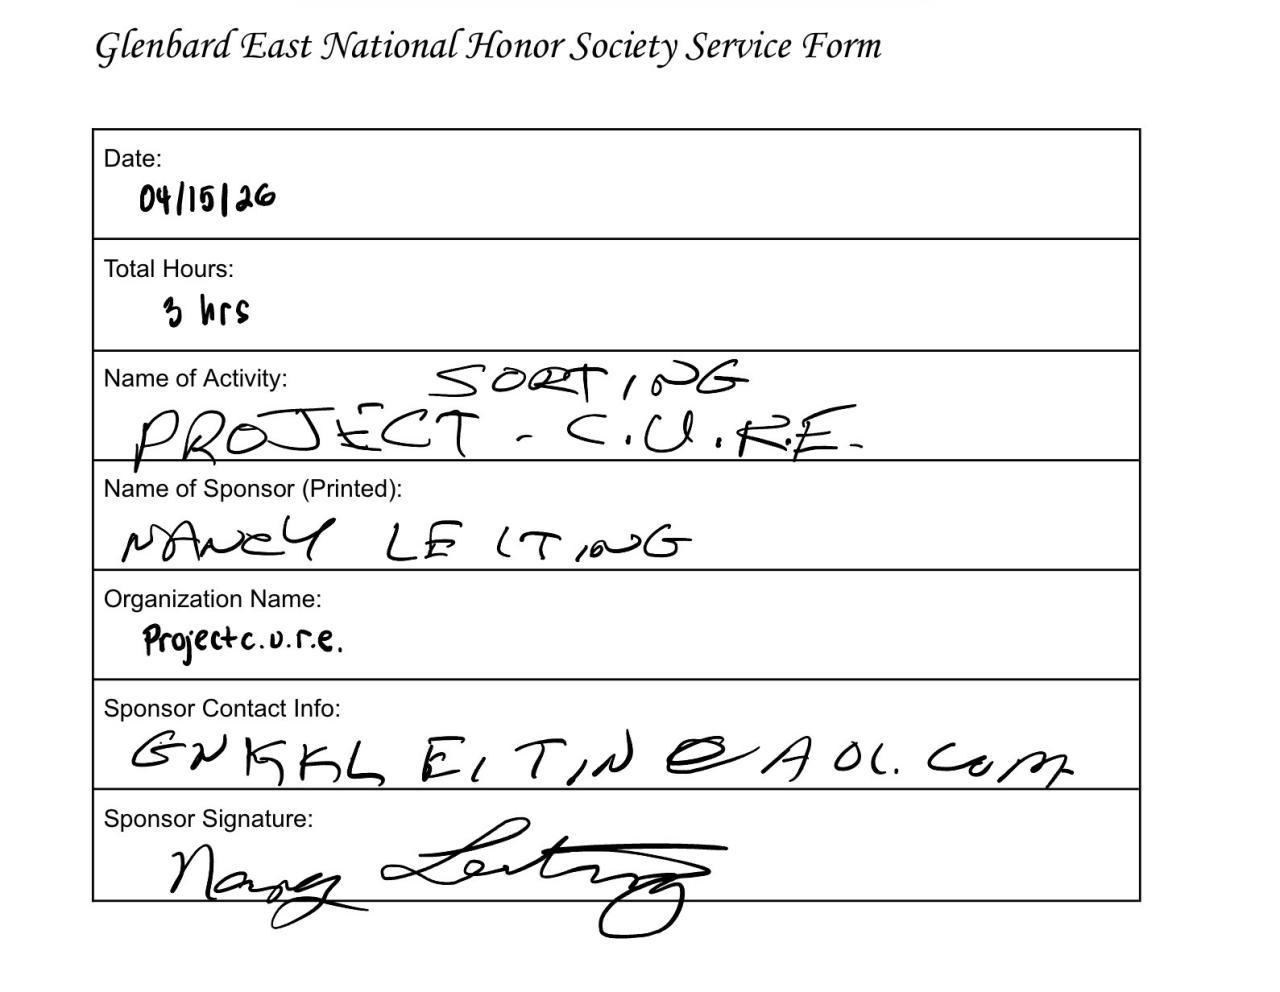 Glenbard East National Honor Society Service Form
Date:
04/15/26
Total Hours:
3 hrs
Name of Activity: SORTING
PROJECT - C.U.R.E.
Name of Sponsor (Printed):
NANCY LEITING
Organization Name:
Project c.u.r.e.
Sponsor Contact Info:
GNKKLEITIN@AOL.COM
Sponsor Signature:
Nancy Leiting